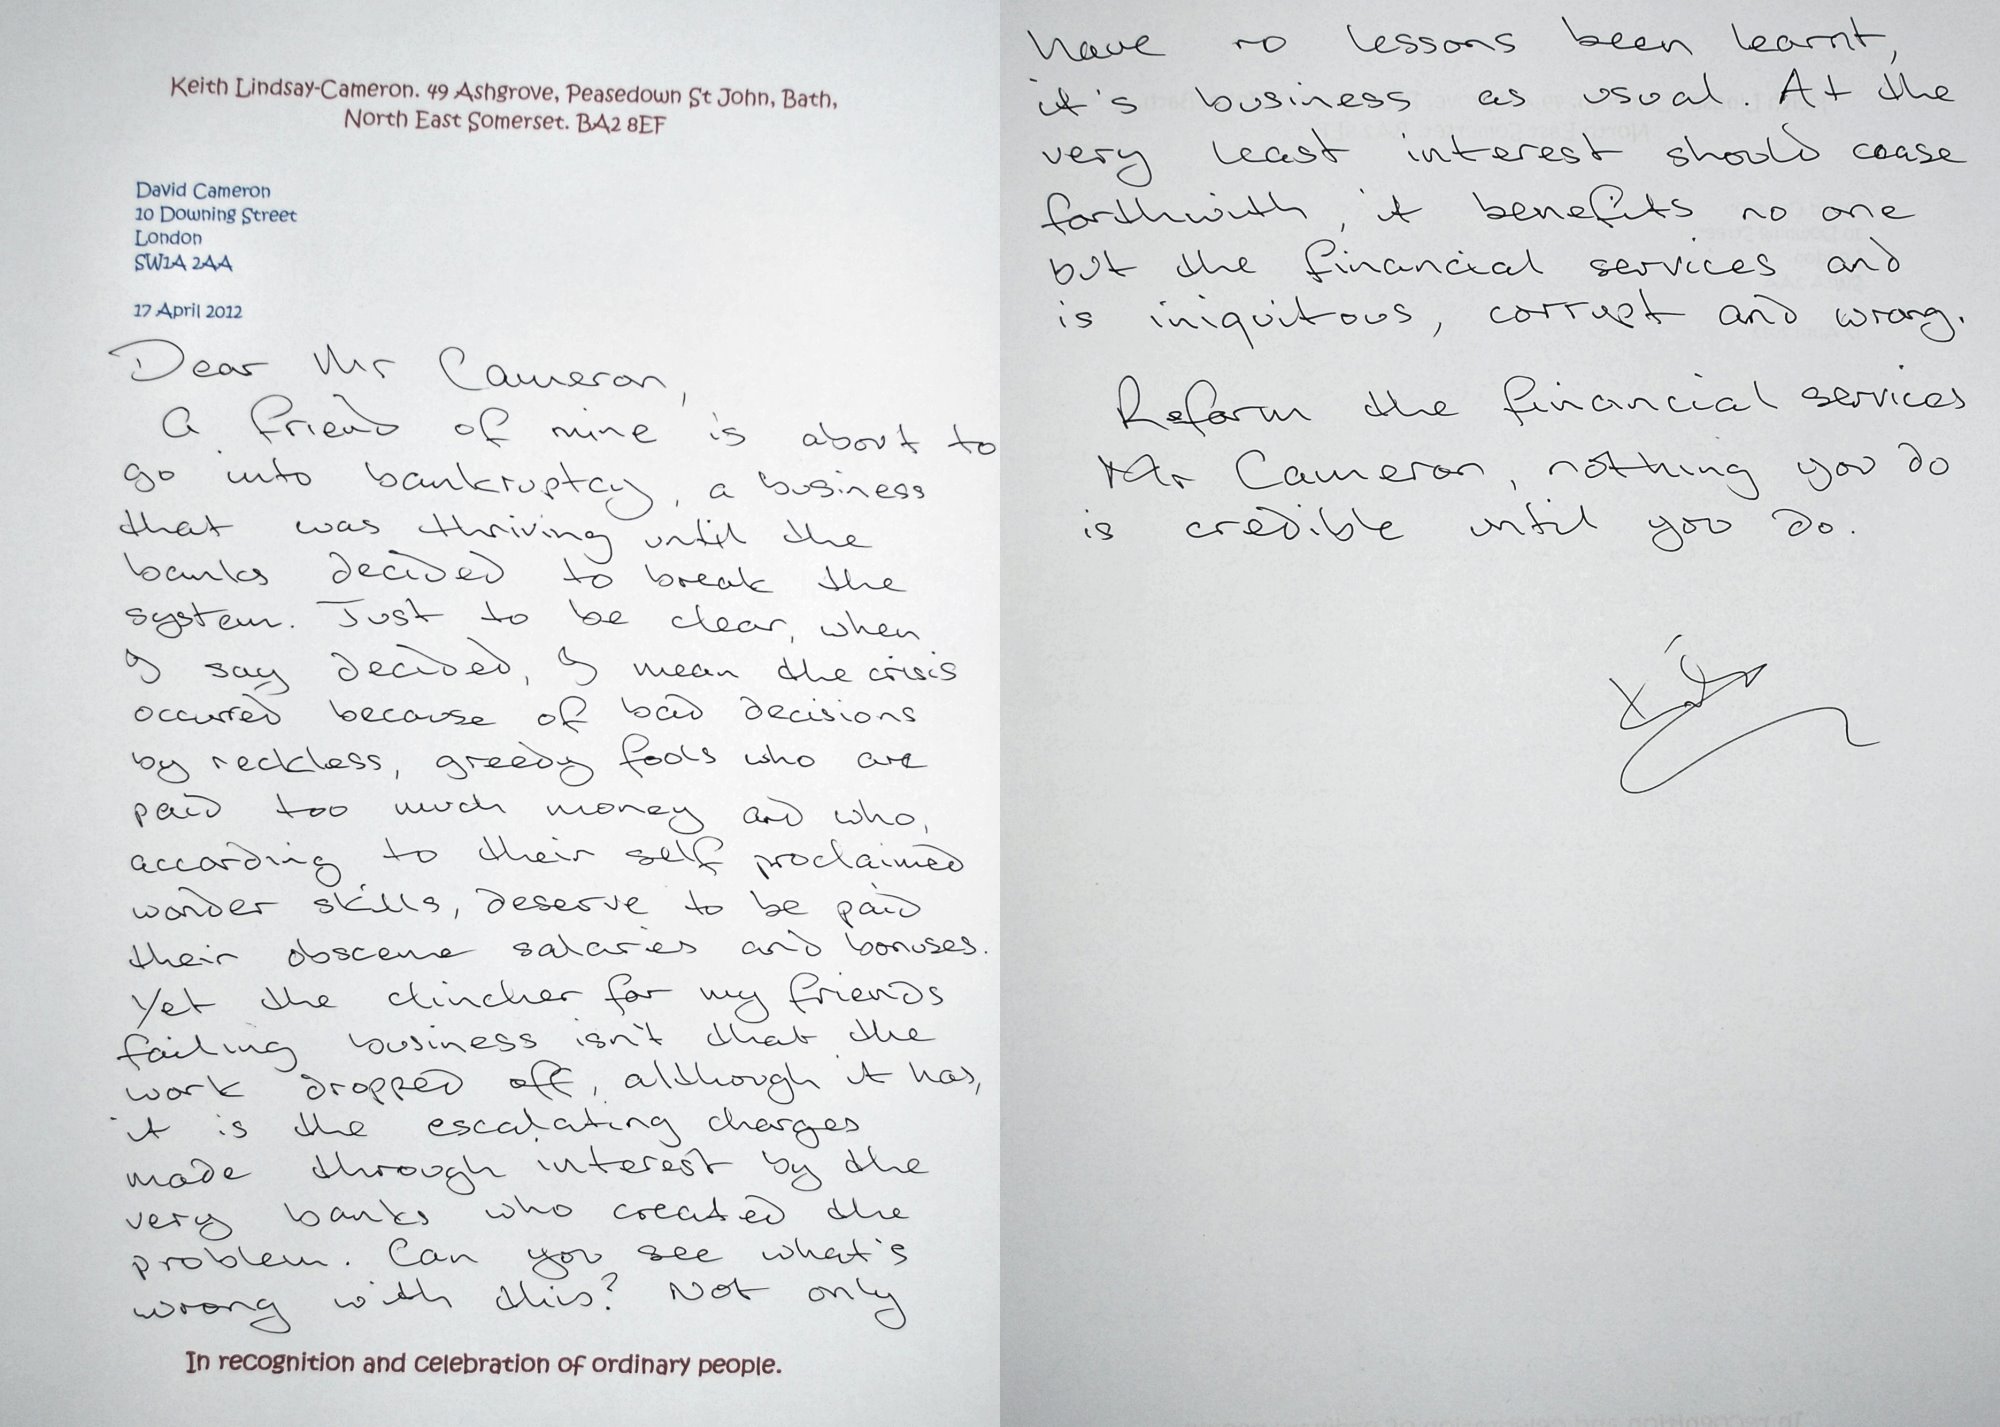 Keith Lindsay-Cameron. 49 Ashgrove, Peasedown St John, Bath,
North East Somerset. BA2 8EF
David Cameron
10 Downing Street
London
SW1A 2AA
17 April 2012
Dear Mr Cameron,
A friend of mine is about to
go into bankruptcy, a business
that was thriving until the
banks decided to break the
system. Just to be clear, when
I say decided, I mean the crisis
occurred because of bad decisions
by reckless, greedy fools who are
paid too much money and who,
according to their self proclaimed
wonder skills, deserve to be paid
their obscene salaries and bonuses.
Yet the clincher for my friends
failing business isn't that the
work dropped off, although it has,
it is the escalating charges
made through interest by the
very banks who created the
problem. Can you see what's
wrong with this? Not only
In recognition and celebration of ordinary people.
have no lessons been learnt,
it's business as usual. At the
very least interest should cease
forthwith, it benefits no one
but the financial services and
is iniquitous, corrupt and wrong.
Reform the financial services
Mr Cameron, nothing you do
is credible until you do.